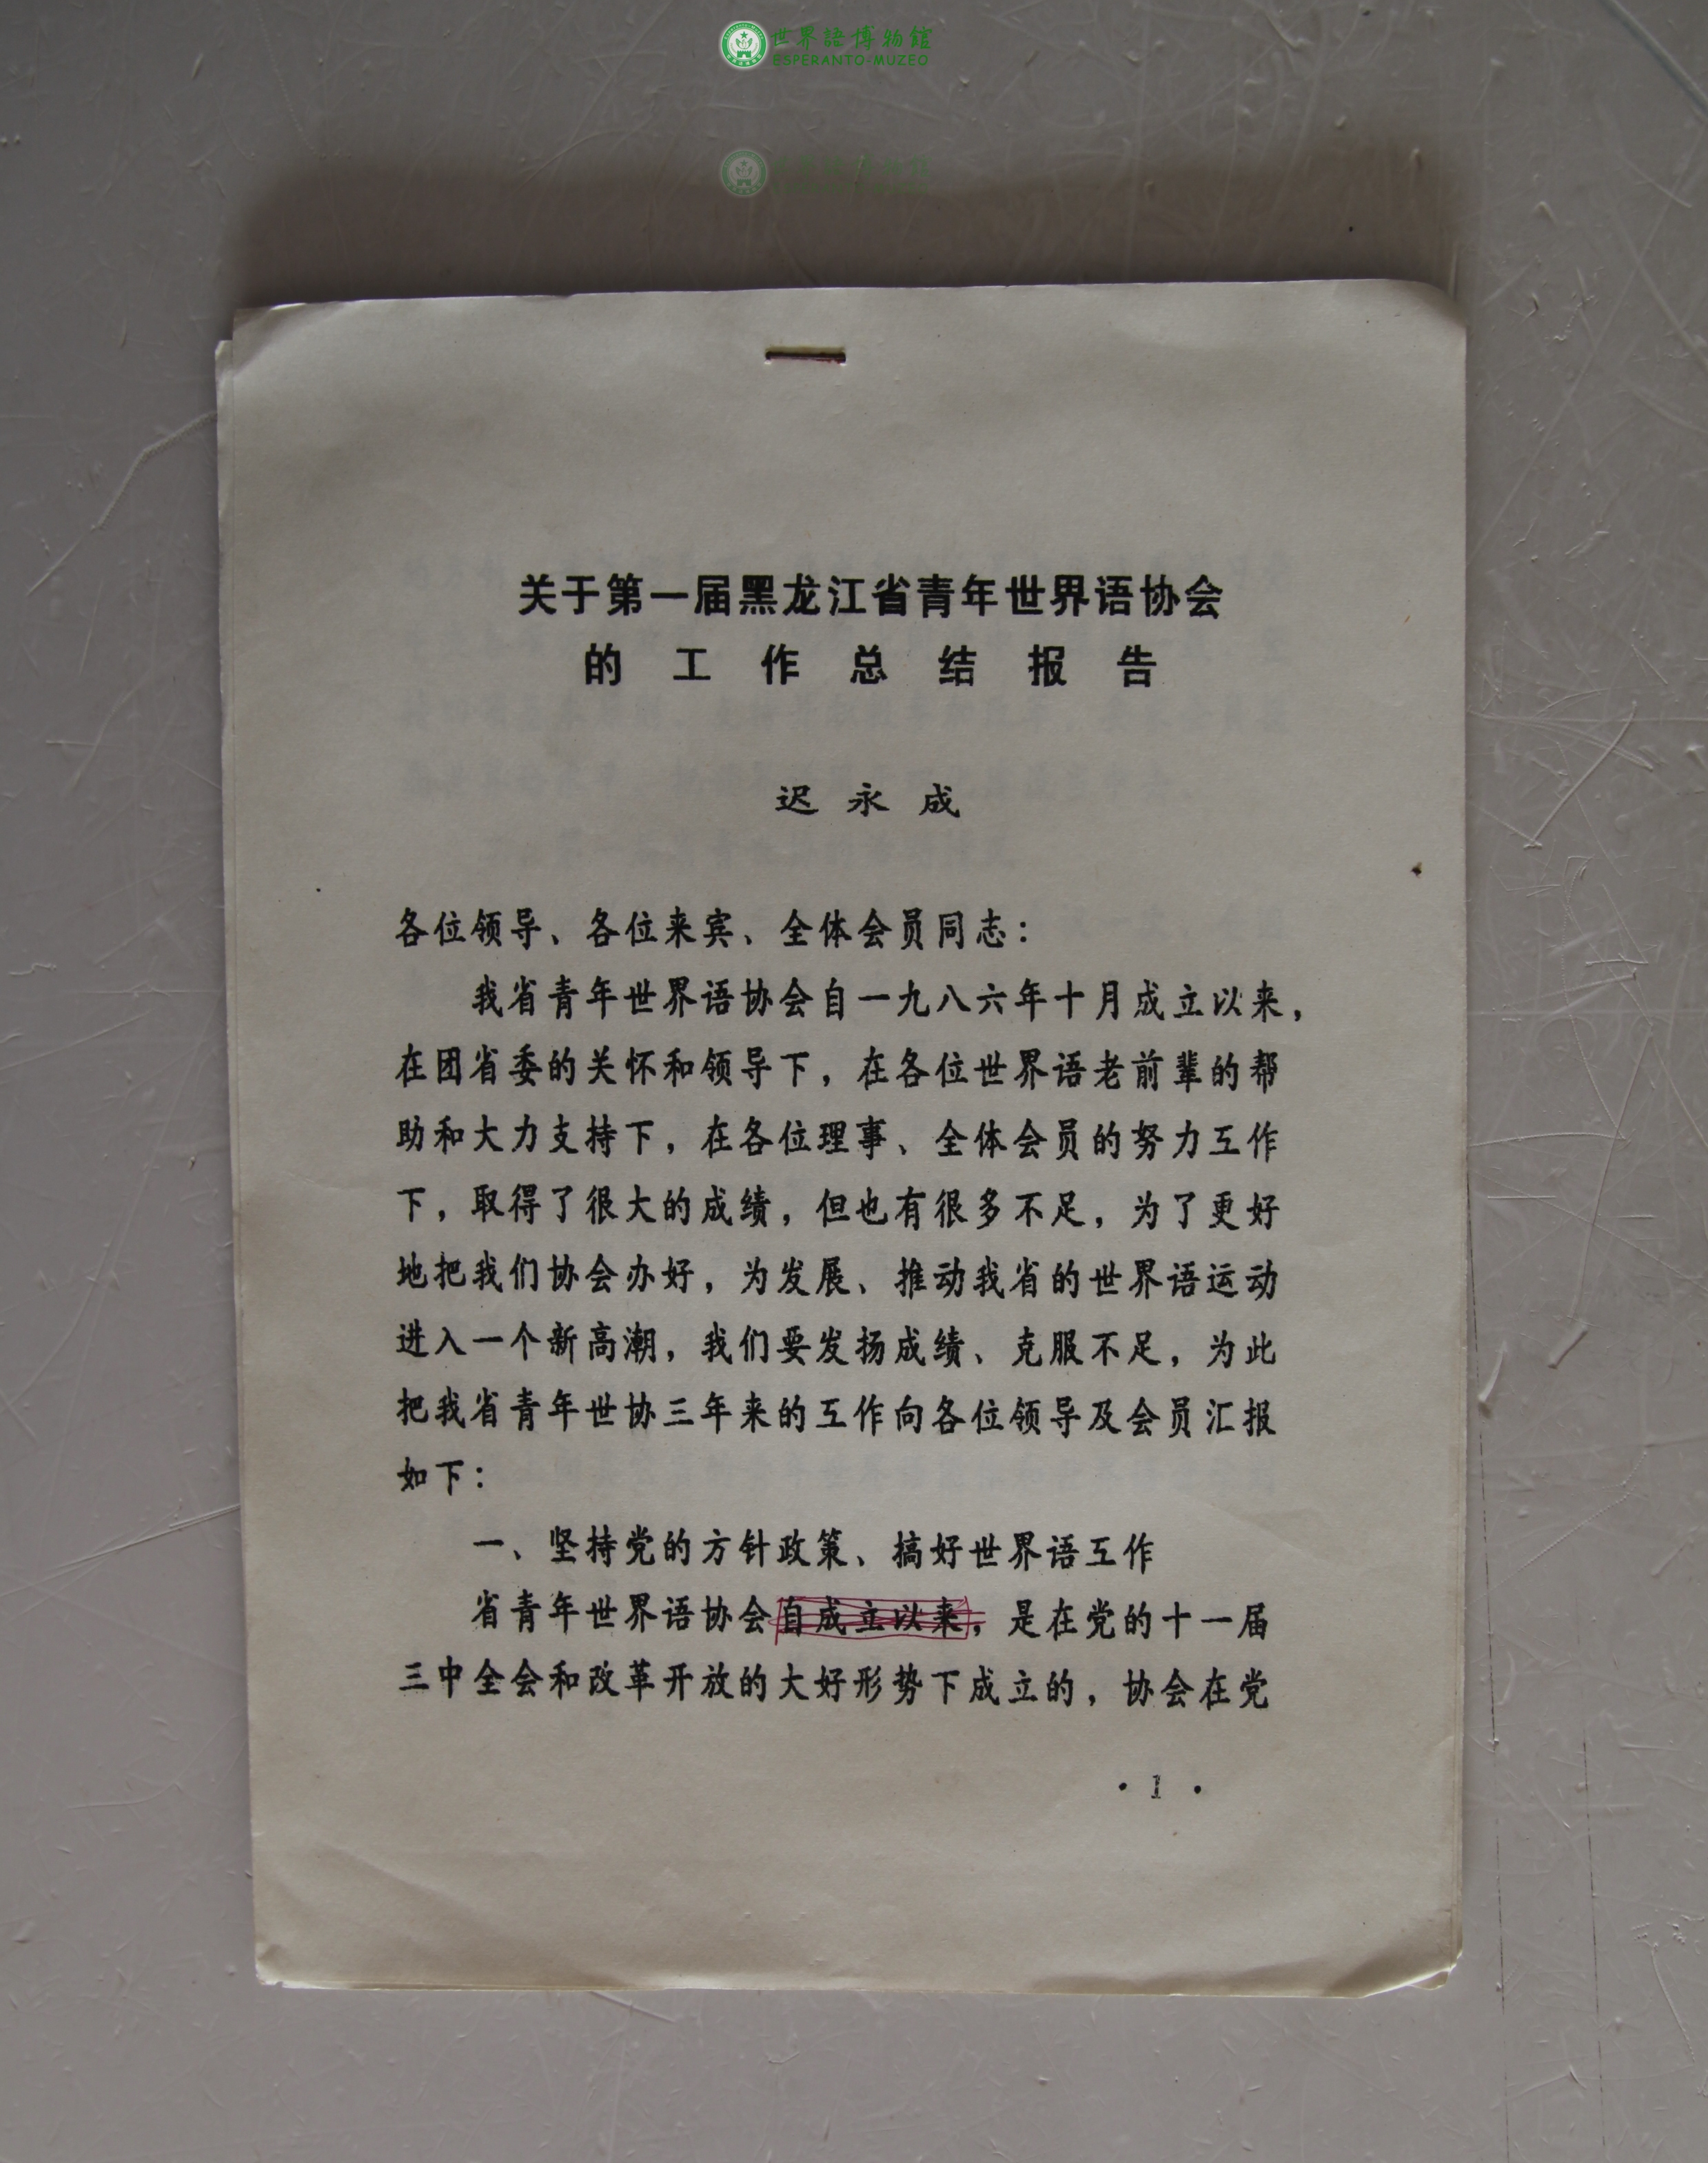 世界語博物館
ESPERANTO-MUZEO
世界語博物館
关于第一届黑龙江省青年世界语协会
的工作总结报告
迟永成
各位领导、各位来宾、全体会员同志：
我省青年世界语协会自一九八六年十月成立以来，
在团省委的关怀和领导下，在各位世界语老前辈的帮
助和大力支持下，在各位理事、全体会员的努力工作
下，取得了很大的成绩，但也有很多不足，为了更好
地把我们协会办好，为发展、推动我省的世界语运动
进入一个新高潮，我们要发扬成绩、克服不足，为此
把我省青年世协三年来的工作向各位领导及会员汇报
如下：
一、坚持党的方针政策、搞好世界语工作
省青年世界语协会自成立以来，是在党的十一届
三中全会和改革开放的大好形势下成立的，协会在党
·1·